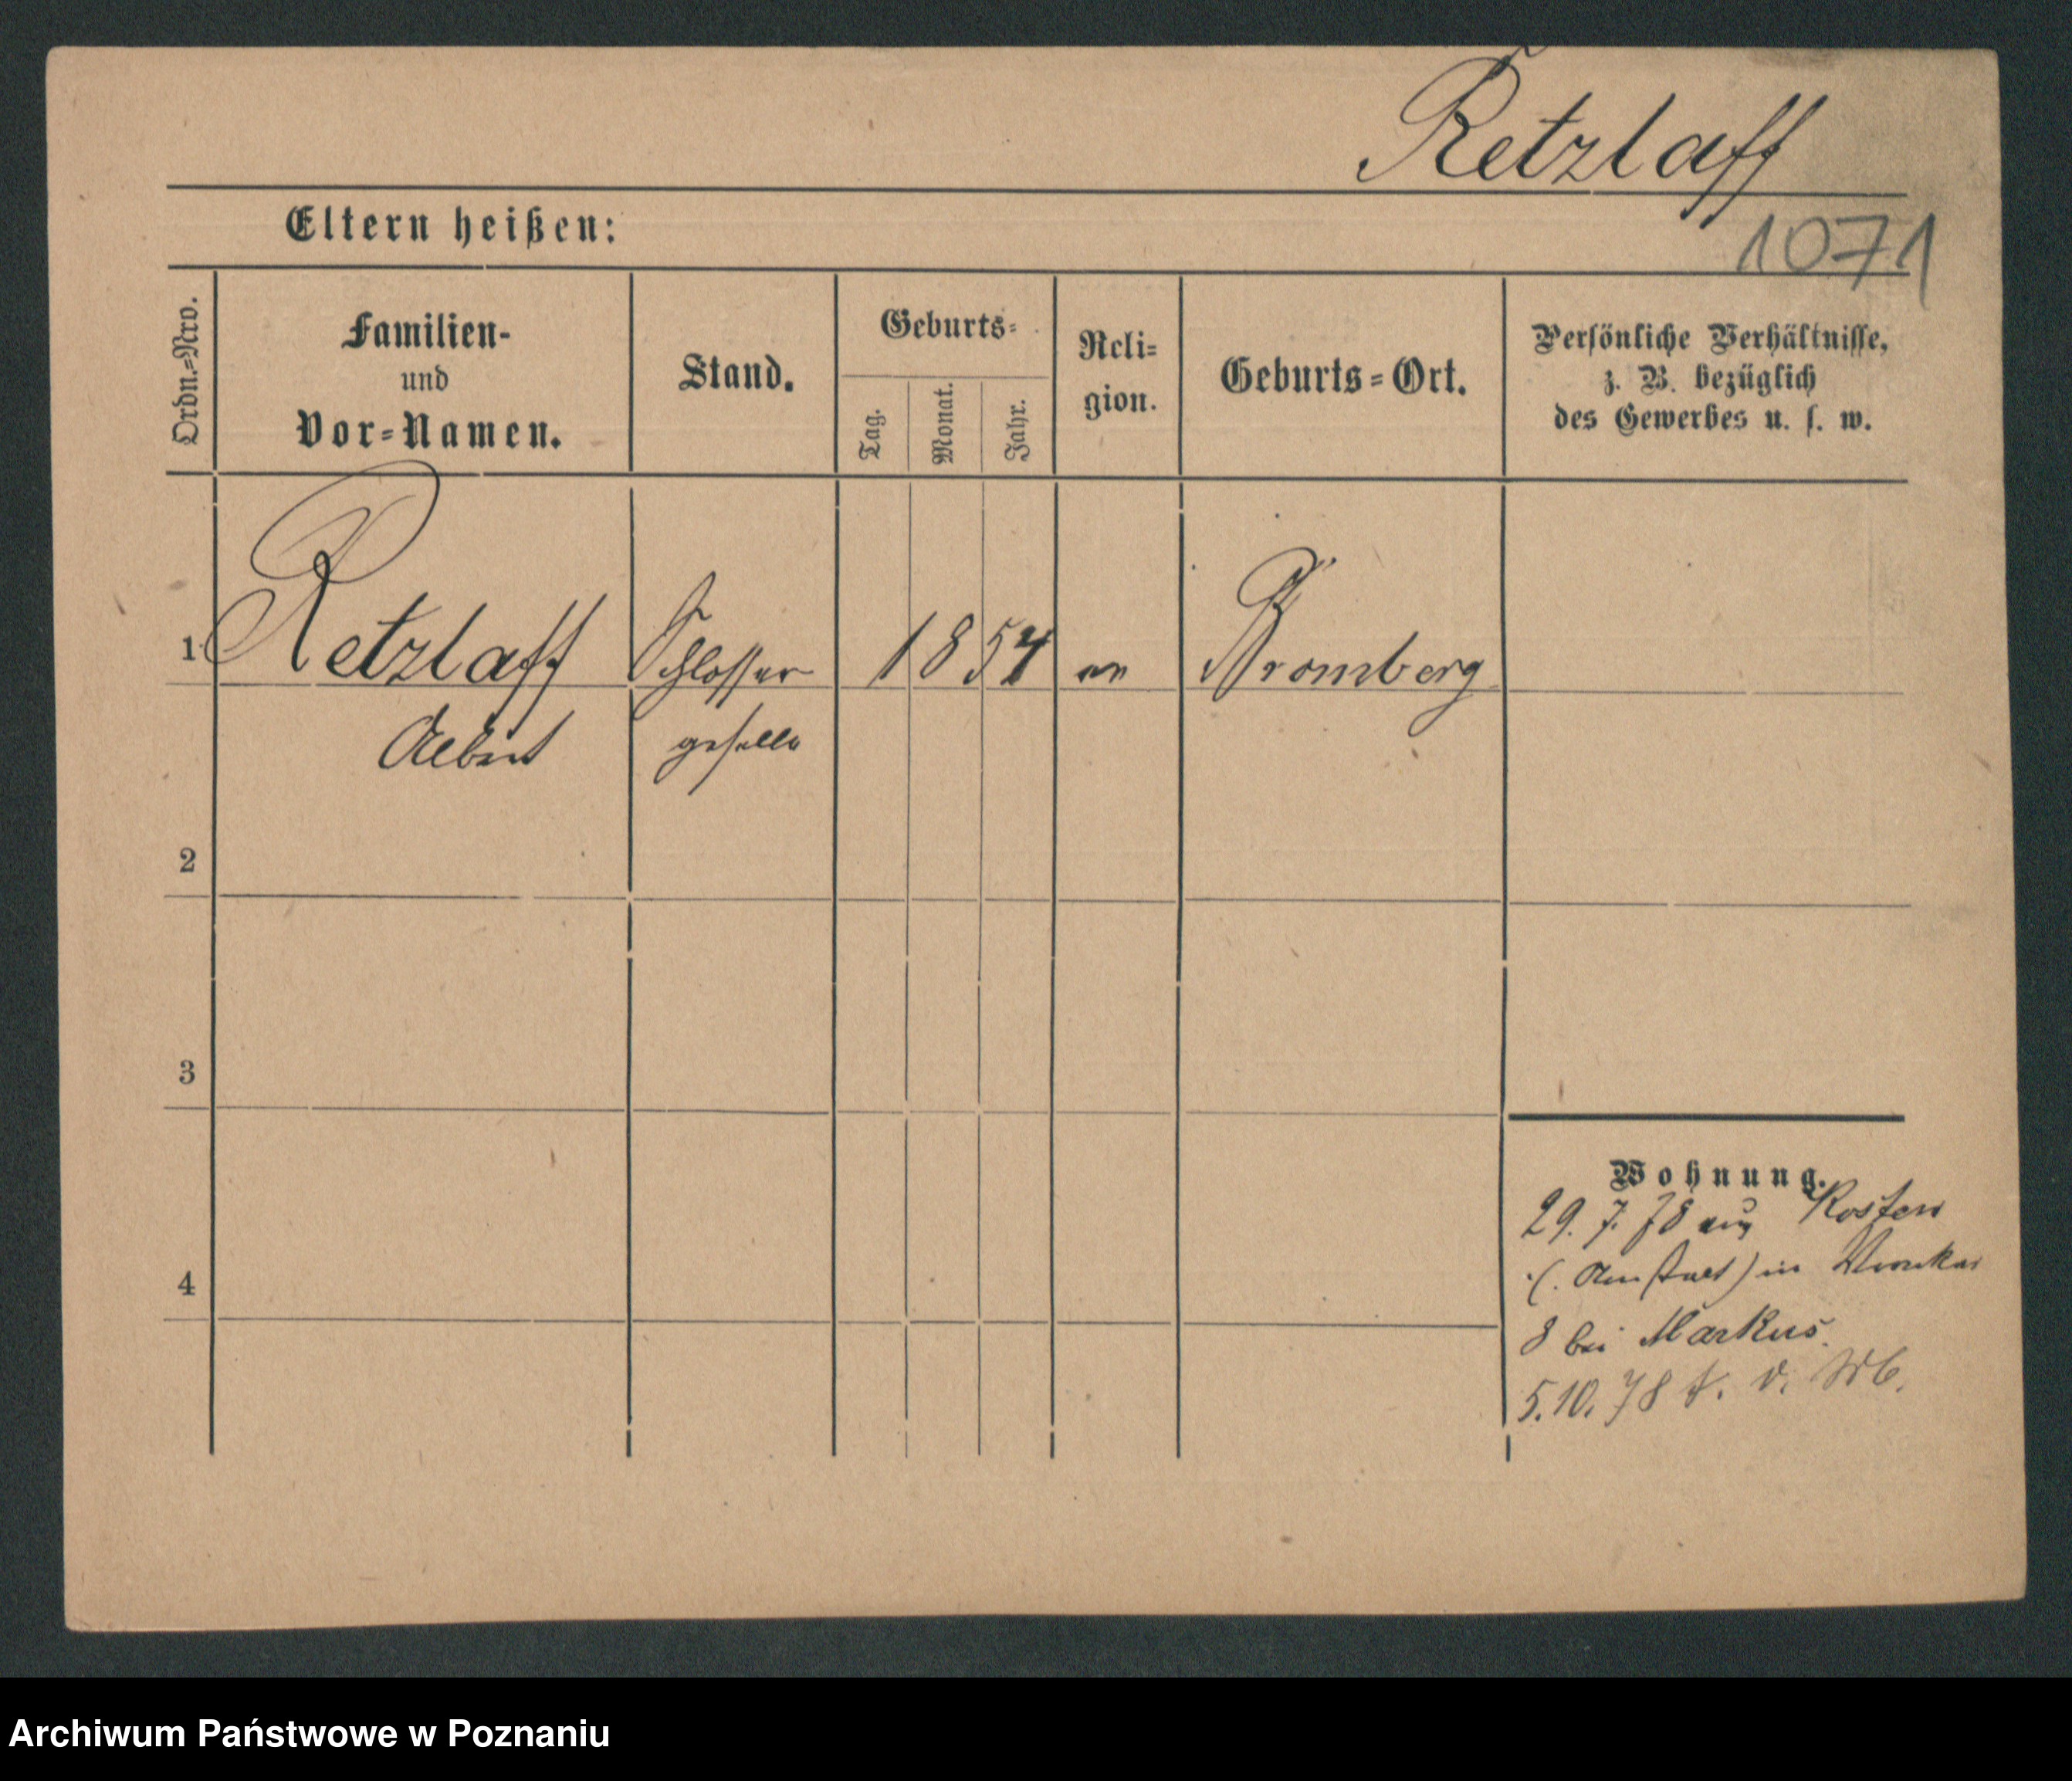 Retzlaff
Eltern heißen:
1071
Ordn.=Nro.
Familien-
und
Vor=Namen.
Stand.
Geburts=
Tag.
Monat.
Jahr.
Reli=
gion.
Geburts=Ort.
Persönliche Verhältnisse,
z. B. bezüglich
des Gewerbes u. s. w.
1 Retzlaff Schlosser 1854 Bromberg
Albert geselle
2
3
4
Wohnung.
29. 7. 78 aus Kosten
in
8 bei Markus.
5.10.78
Archiwum Państwowe w Poznaniu